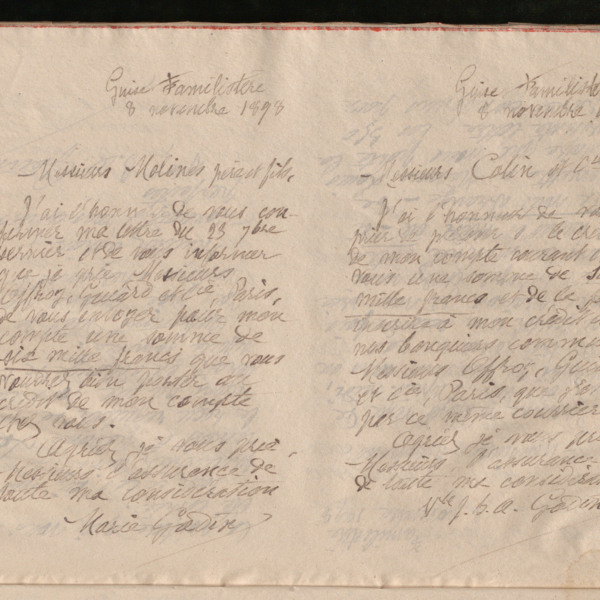 Guise Familistère
8 novembre 1898
Messieurs Molines père et fils,
J'ai l'honneur de vous con-
firmer ma lettre du 23 7bre
dernier et de vous informer
que je prie Messieurs
Offroy, Guiard et Cie, Paris,
de vous envoyer pour mon
compte une somme de
six mille francs que vous
voudrez bien porter au
crédit de mon compte
chez vous.
Agréez je vous prie,
Messieurs l'assurance de
toute ma considération
Marie Godin
Guise Familistè
8 novembre 1
Messieurs Colin et Cie
J'ai l'honneur de vou
prier de prendre le cré
de mon compte courant
vous une somme de
mille francs et de la
inscrire à mon crédit
nos banquiers commu
Messieurs Offroy, Gui
et Cie, Paris, que
par ce même courrier
Agréez je vous pri
Messieurs l'assurance
de toute ma considéra
Vve J. B. A. Godin